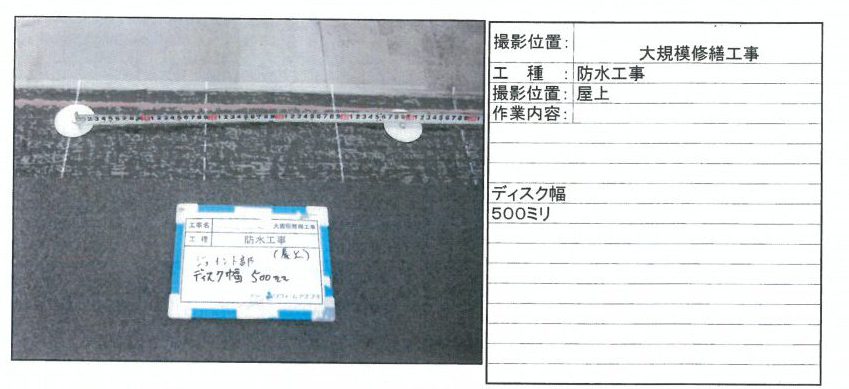 工事名 大規模修繕工事
工種 防水工事
(屋上)
ジョイント部
ディスク幅 500ミリ
撮影位置:
大規模修繕工事
工 種 :防水工事
撮影位置:屋上
作業内容:
ディスク幅
500ミリ